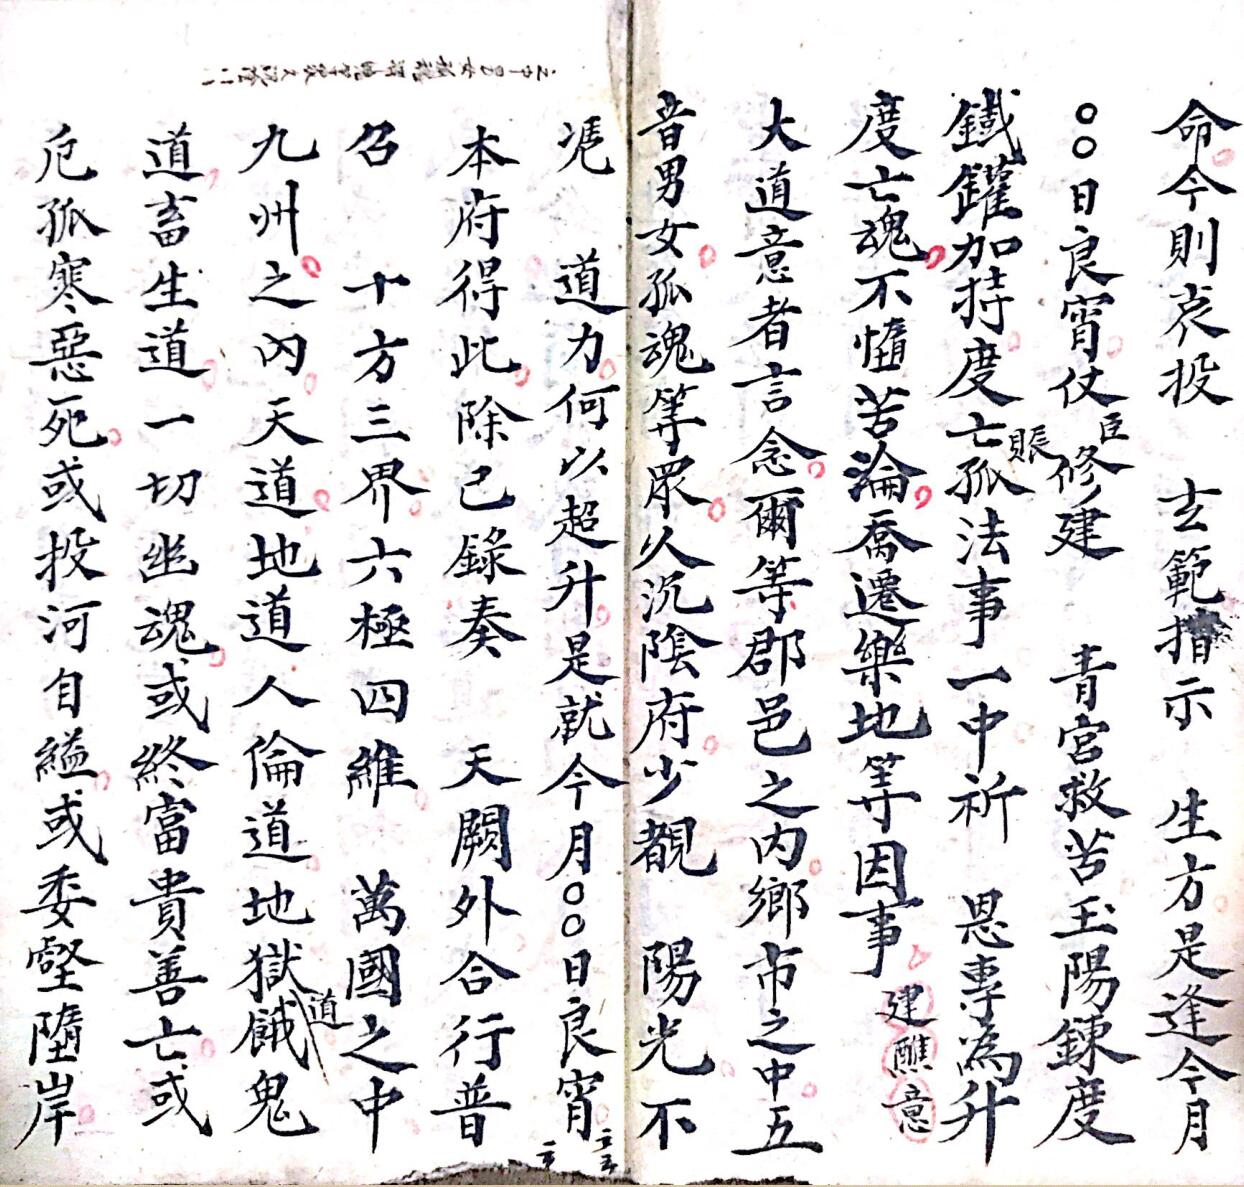 命今則哀投　玄範指示　生方是逢今月
○○日良宵仗臣修建　青宮救苦玉陽鍊度
鐵鑵加持度亡賑孤法事一中祈　恩專為升
度亡魂不墮苦淪喬遷樂地等因事　建醮意
大道意者言念爾等郡邑之内鄉市之中五
音男女孤魂等眾久沉陰府少覩　陽光不
凴　道力何以超升是就今月○○日良宵
本府得此除已錄奏　天闕外合行普
召　十方三界六極四維　萬國之中
九州之内天道地道人倫道地獄道餓鬼
道畜生道一切幽魂或終富貴善亡或
厄孤寒惡死或投河自縊或委壑墮岸